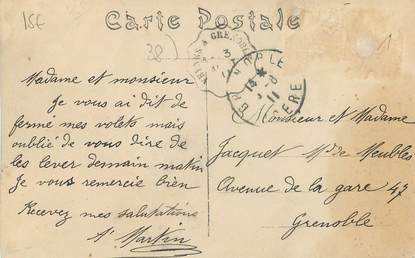 15E
Carte Postale
38)
GRENOBLE
ISERE
Madame et monsieur
Je vous ai dit de
fermé mes volets mais
oublié de vous dire de
les lever demain matin
Je vous remercie bien
Recevez mes salutations
A Martin
Monsieur et Madame
Jacquet Md de Meubles
Avenue de la gare 47
Grenoble